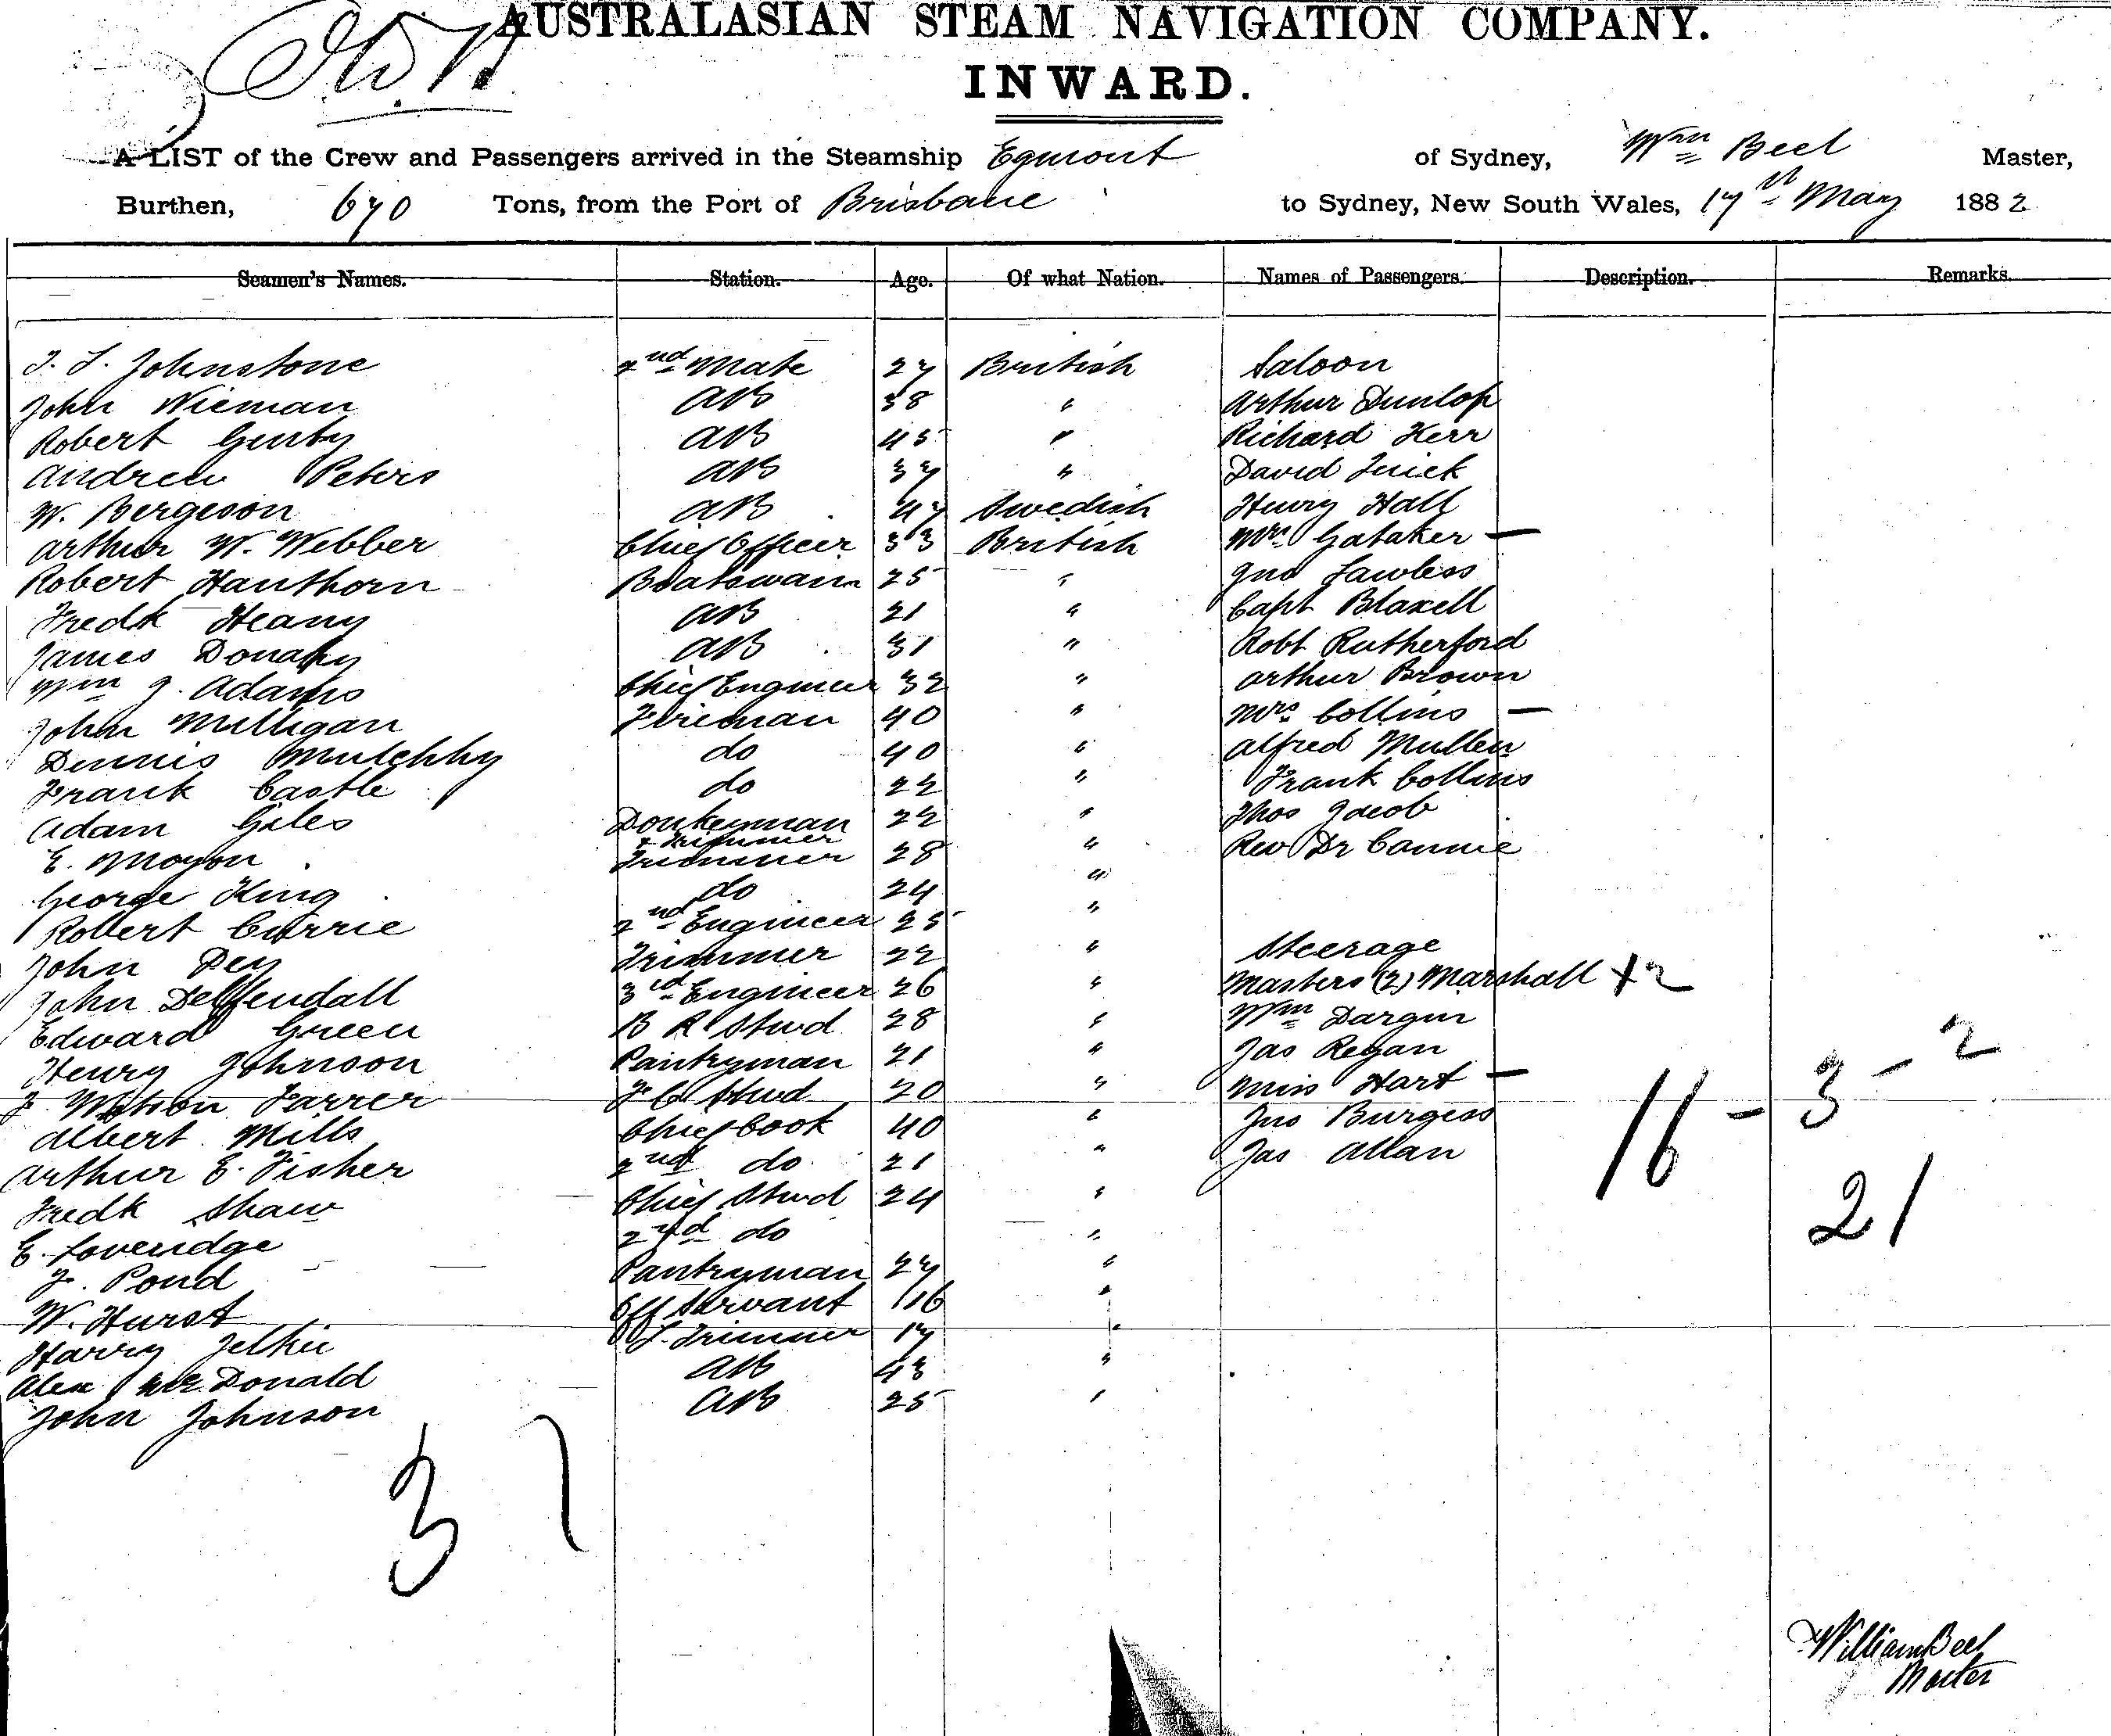 AUSTRALASIAN STEAM NAVIGATION COMPANY.
INWARD.
A LIST of the Crew and Passengers arrived in the Steamship Egmont of Sydney, Wm Beel Master,
Burthen, 670 Tons, from the Port of Brisbane to Sydney, New South Wales, 17th May 1882
Seamen's Names. Station. Age. Of what Nation. Names of Passengers. Description. Remarks.
J. S. Johnstone 2nd Mate 27 British Saloon
John Nieman AB 38 " Arthur Dunlop
Robert Ginty AB 45 " Richard Kerr
Andrew Peters AB 37 " David Quick
W. Bergeson AB 47 Swedish Henry Hall
Arthur W. Webber Chief Officer 33 British Mrs Gataker —
Robert Hanthorn Boatswain 25 " Jno Lawless
Fredk Heany AB 21 " Capt Blaxell
James Donahy AB 31 " Robt Rutherford
Wm J. Adams Chief Engineer 32 " Arthur Brown
John Milligan Fireman 40 " Mrs Collins —
Dennis do 40 " Alfred Mullen
Frank Castle do 22 " Frank Collins
Adam Giles Donkeyman & Trimmer 22 " Thos Jacob
E. Moyon Trimmer 28 " Rev Dr Cannie
George King do 24 "
Robert Currie 2nd Engineer 25 "
John Dey Trimmer 22 " Steerage
John Deffendall 3rd Engineer 26 " Masters (2) Marshall +2
Edward Green B R Stwd 28 " Wm Dargin
Henry Johnson Pantryman 21 " Jas Regan
J. Watson Farrer F C Stwd 20 " Miss Hart —
Albert Mills Chief Cook 40 " Jno Burgess
Arthur E. Fisher 2nd do 21 " Jas Allan
16 - 3 - 2
21
Fredk Shaw Chief Stwd 24 "
E. Loveridge 2nd do "
F. Pond Pantryman 27 "
W. Hurst Off Servant 16 "
Harry Trimmer 17 "
Alex McDonald AB 43 "
John Johnson AB 25 "
31
William Beel
Master